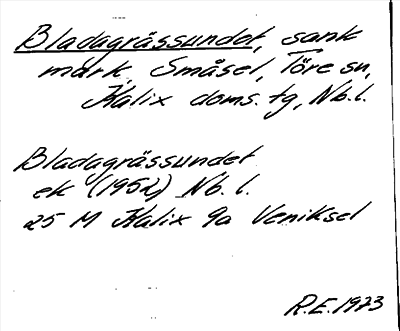 Bladagrässundet, sank
mark, Småsel, Töre sn,
Kalix doms. tg, Nb. l.
Bladagrässundet
ek (1952) Nb. l.
25 M Kalix 9a Veniksel
R.E. 1973